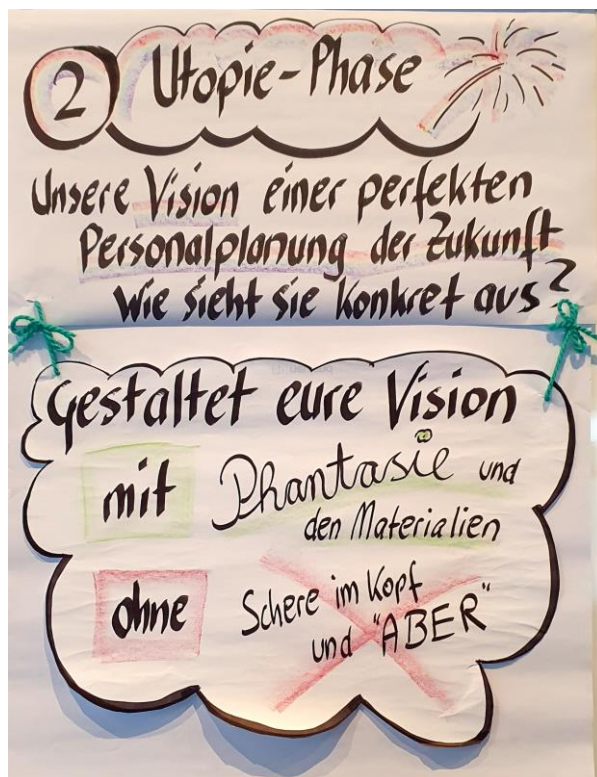 2 Utopie-Phase
Unsere Vision einer perfekten
Personalplanung der Zukunft
Wie sieht sie konkret aus?
Gestaltet eure Vision
mit Phantasie und
den Materialien
ohne Schere im Kopf
und "ABER"